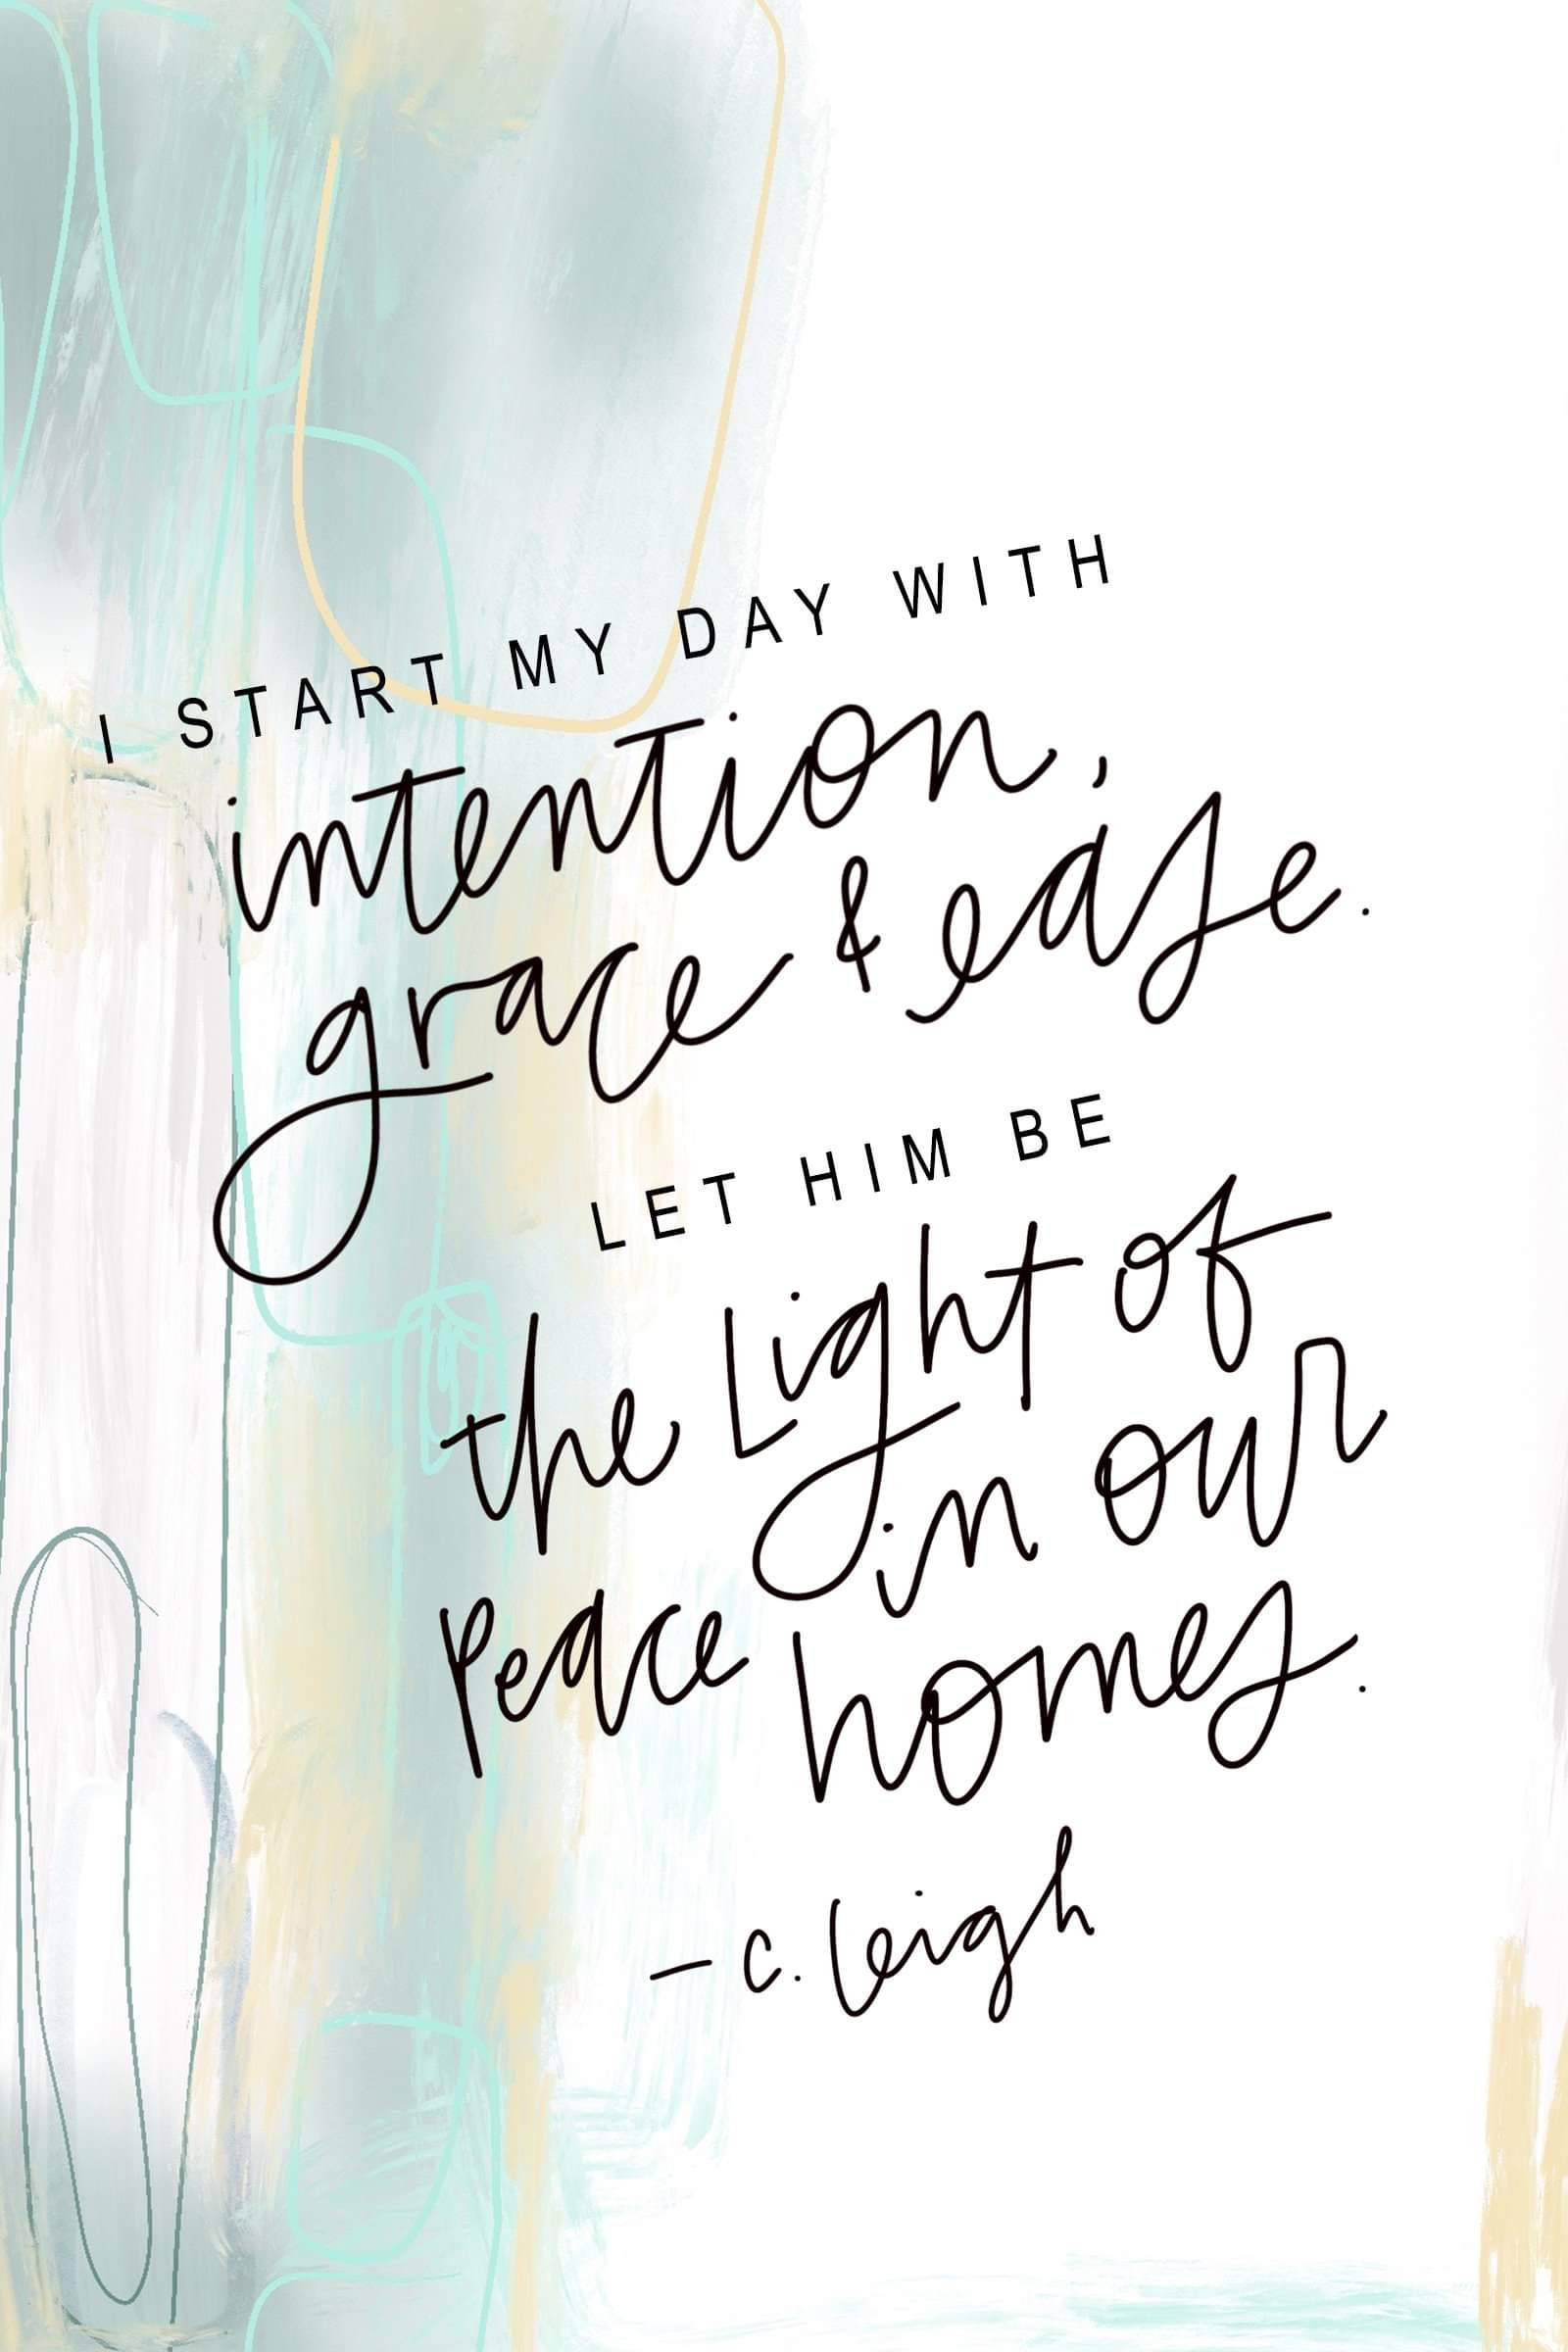 I START MY DAY WITH
intention,
grace & ease.
LET HIM BE
the Light of
Peace in our
homes.
- c. Leigh